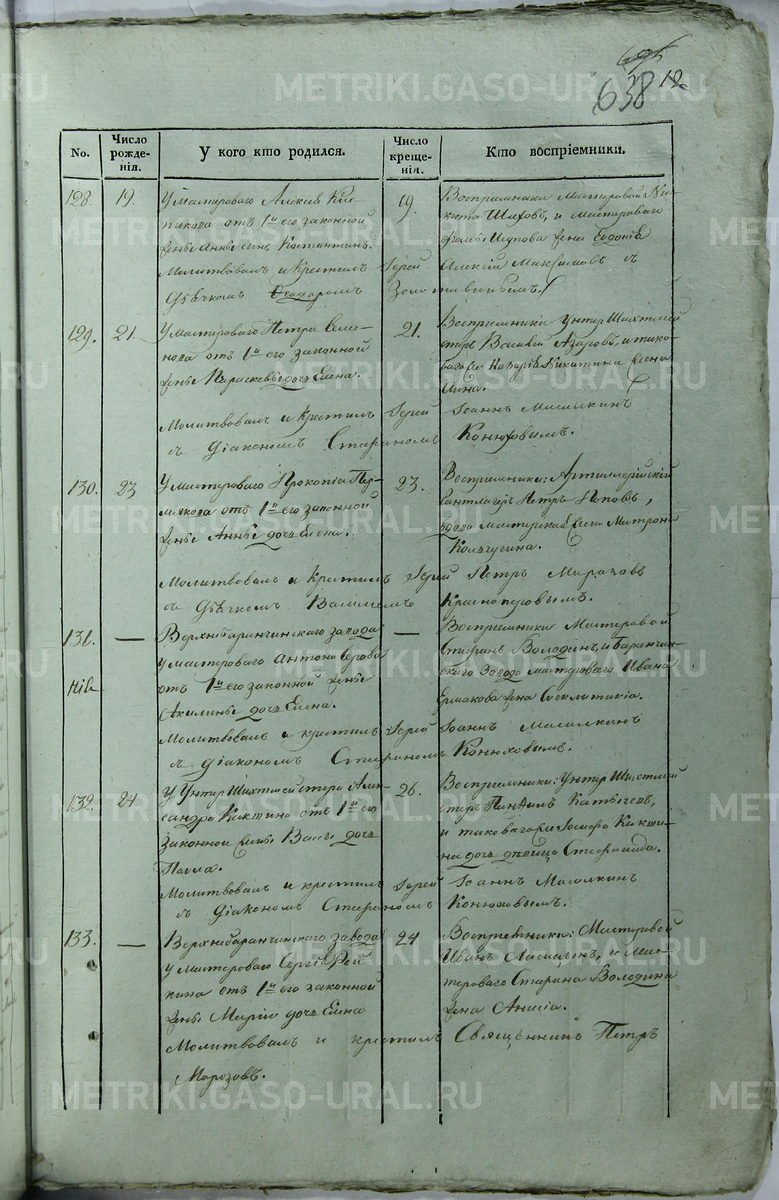 638 12
No.
Число рожденія.
У кого кто родился.
Число крещенія.
Кто воспріемники.
128. 19.
У мастероваго Алексія
отъ 1й его законной
жены Анны сынъ Костантинъ.
Молитвовалъ и Крестилъ Іерей
Дьячкомъ Ѳеодоромъ
19.
Воспріемники Мастеровый Ни-
кита и мастероваго
жена Евдокія
Алексій Максимовъ с
129. 21.
У мастероваго Петра Семе-
нова отъ 1й законной
жены Параскевы дочь Елена.
Молитвовалъ и крестилъ Іерей
съ Діакономъ Стефаномъ
21.
Воспріемники Унтер Шихтмей
стеръ Василій Азаровъ, и тако-
ваго Назарія Никитина жена
Анна.
Іоаннъ Масалкинъ
Конюховымъ.
130. 23
У мастероваго Прокопія Пер-
мякова отъ 1й законной
жены Анны дочь Елена.
Молитвовалъ и Крестилъ Іерей
съ Дьячкомъ Василіемъ
23.
Воспріемники: Артиллерійскій
Петръ Поповъ,
Матрона
Кольчугина.
Петръ Морозовъ
Красноперовымъ.
131. —
Верхнебаранчинскаго завода
у мастероваго Антона Серова
отъ 1й его законной жены
Акилины дочь Елена.
Молитвовалъ и крестилъ Іерей
съ Діакономъ Стефаномъ
—
Воспріемники Мастеровой
Стефанъ Володинъ, и Баранчин-
скаго Завода мастероваго Ивана
Ермакова жена Синклитикія.
Іоаннъ Масалкинъ
Конюховымъ.
132. 24
У Унтер Шихтмейстера Алек-
сандра Какшина отъ 1й его
Законной жены Вассы дочь
Павла.
Молитвовалъ и крестилъ Іерей
съ Діакономъ Стефаномъ
26.
Воспріемники: Унтер Шихтмей
стеръ
и таковагоже Іосифа Какши-
на дочь дѣвица Стефанида.
Іоаннъ Масалкинъ
Конюховымъ.
133. —
Верхнебаранчинскаго завода
у мастероваго Сергія Рой-
кина отъ 1й его законной
жены Маріи дочь Елена
Молитвовалъ и крестилъ
Морозовъ.
24
Воспріемники: Мастеровой
Иванъ и Мас-
тероваго Стефана Володина
жена Анисія.
Священникъ Петръ
METRIKI.GASO-URAL.RU